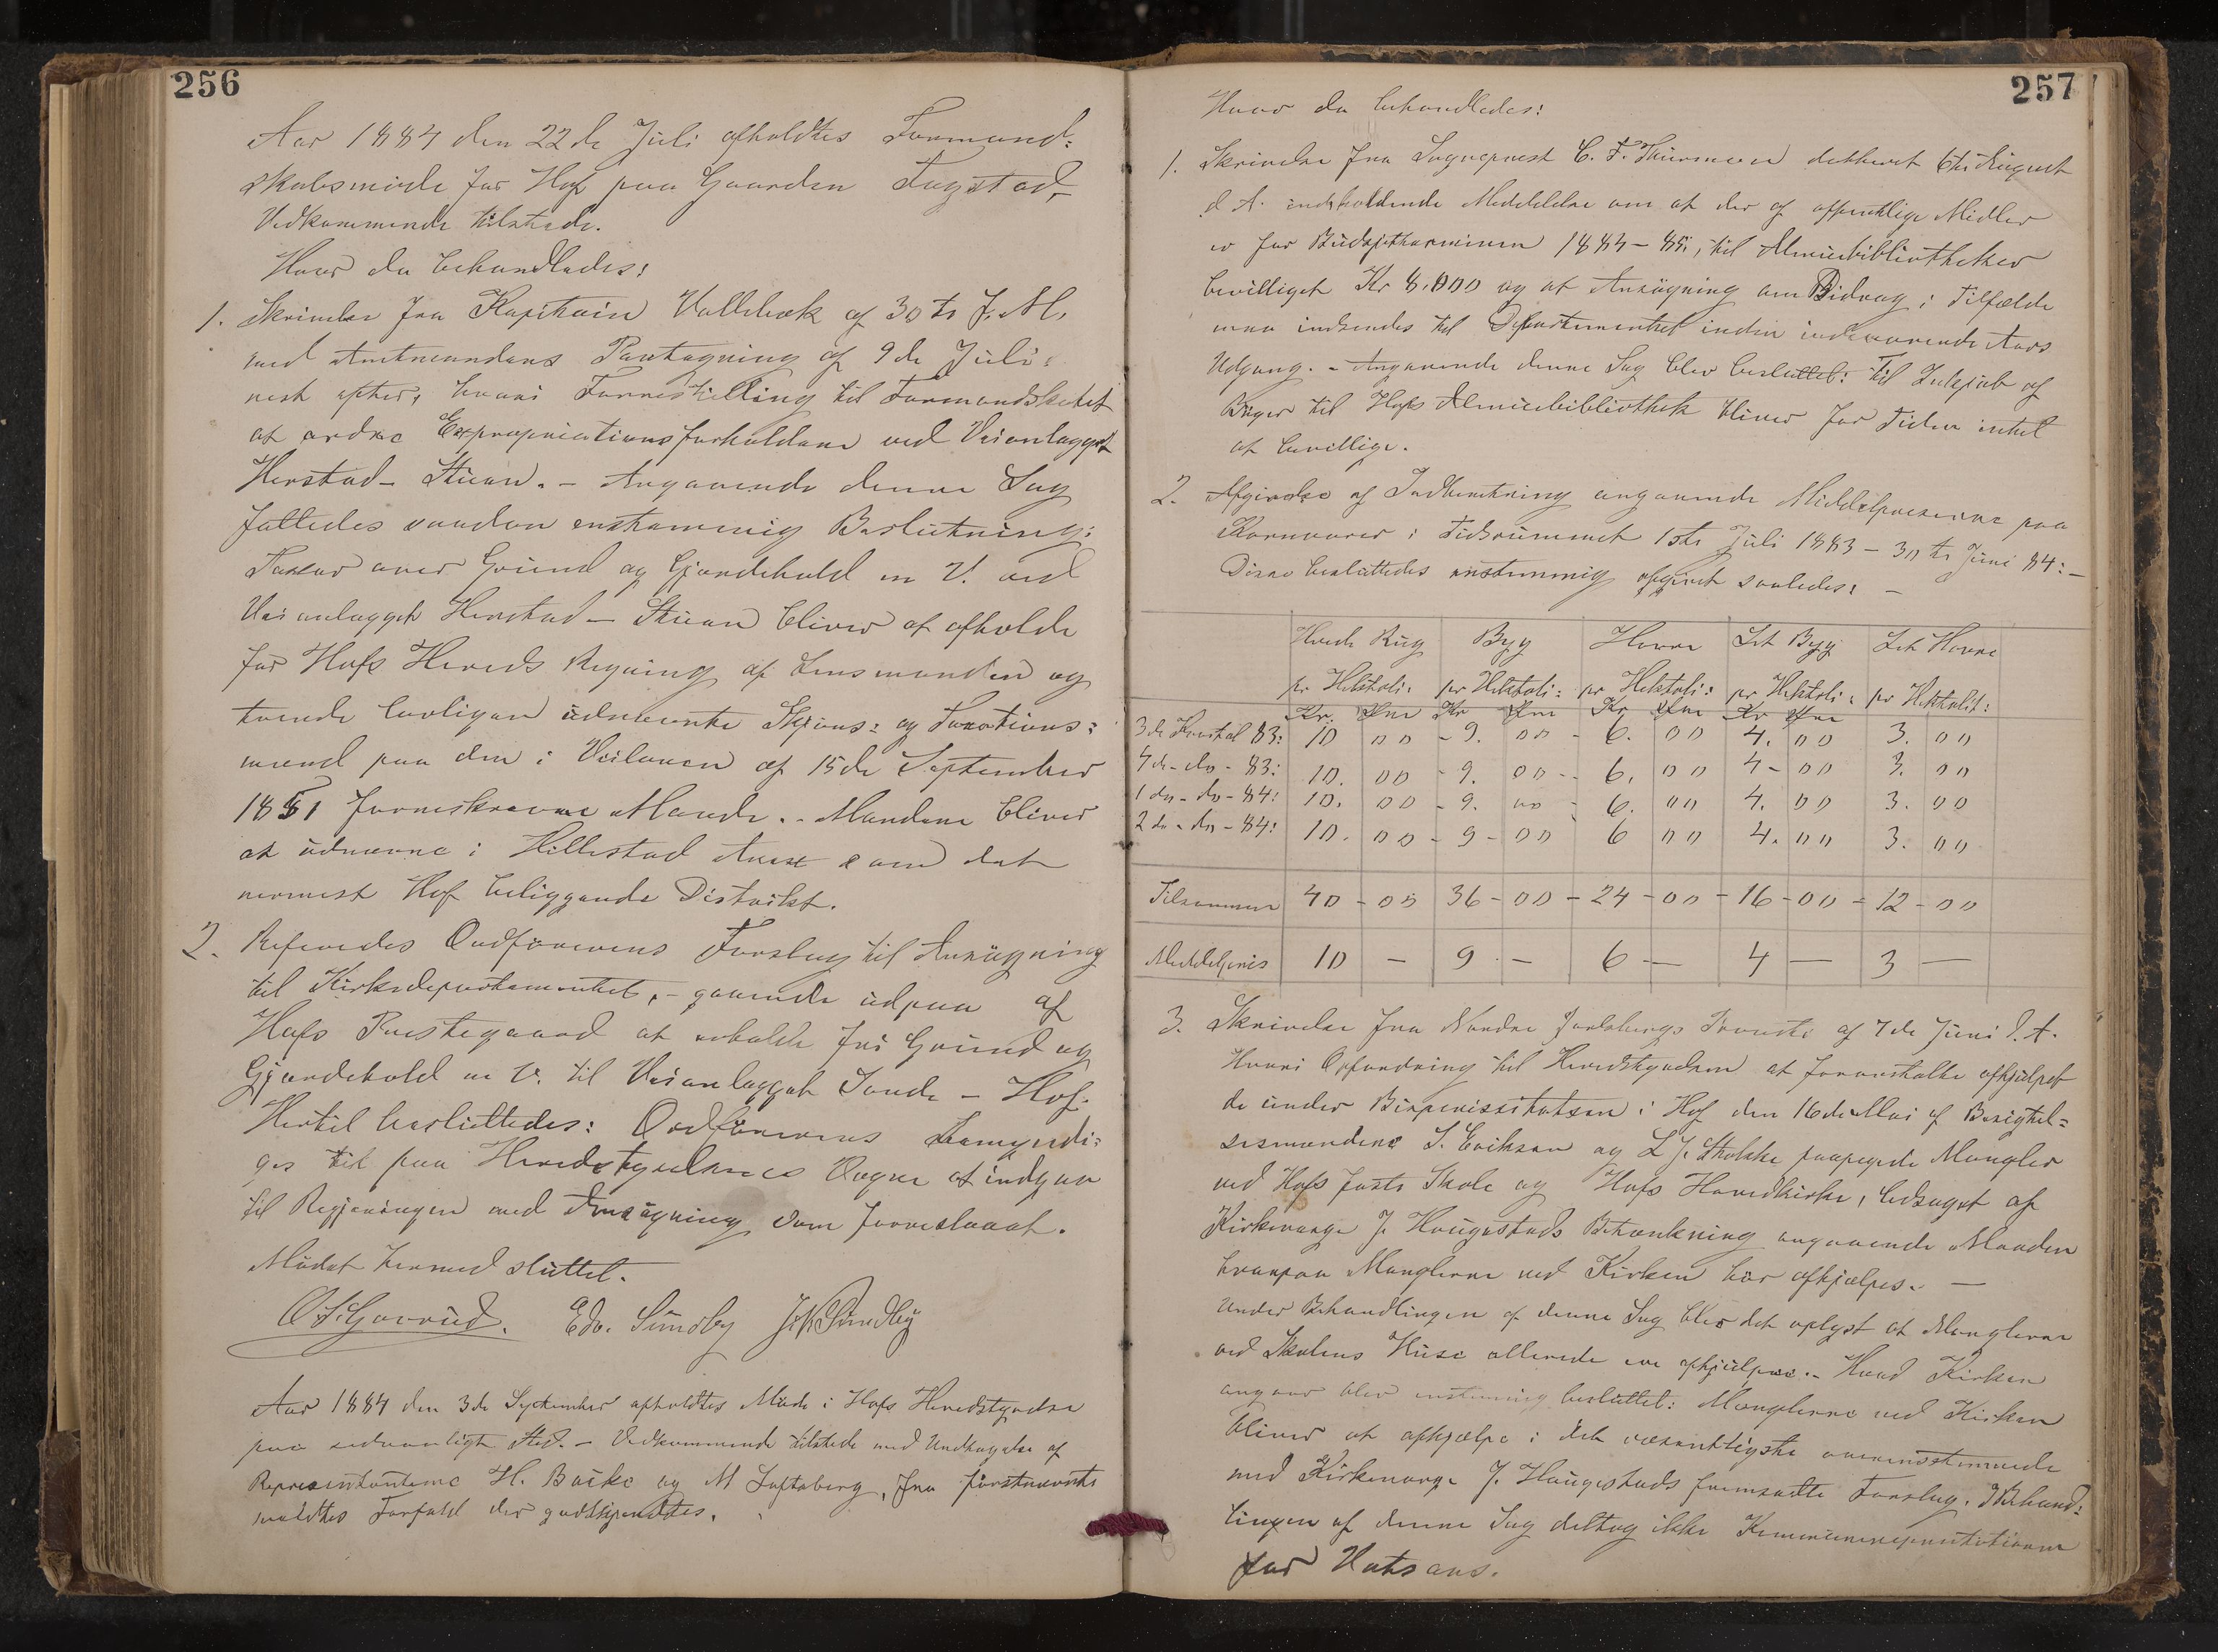 256
Aar 1884 den 22de Juli afholdtes Formand-
skabsmøde for Hof paa Gaarden Fuglstad,
Vedkommende tilstede.
Hvor da behandledes:
1. Skrivelse fra Kapitain Vallebæk af 30te f. M.
med Amtmandens Paategning af 9de Juli
nest efter, hvori Forrestilling til Formandskabet
at ordne Expropriationsforholdene ved Veianlægget
Herstad - Stuan. - Angaaende denne Sag
fattedes saadan enstemmig Beslutning:
Taxter over Grund og Gjerdehold m V. ved
Veianlægget Herstad - Stuan bliver at afholde
for Hofs Herreds Regning af Lensmanden og
tvende lovligen udnævnte Skjøns- og Taxtions-
mænd paa den i Veiloven af 15de September
1851 foreskrevne Maade. - Mændene bliver
at udnævne i Hillestad Annex som det
nermest Hof beliggende Distrikt.
2. Refereredes Ordførerens Forslag til Ansøgning
til Kirkedepartementet, - gaaende udpaa af
Hofs Prestegaard at erholde fri Grund og
Gjærdehold m V. til Veianlægget Sande - Hof.
Hertil besluttedes: Ordføreren bemyndi-
ges til paa Herredstyrelsens Vegne at indgaa
til Regjeringen med Ansøgning som forreslaaet.
Mødet hermed sluttet.
Edv. Sundby J. K. Sundby
Aar 1884 den 3de September afholdtes Møde i Hofs Herredstyrelse
paa sedvanligt Sted. - Vedkommende tilstede med Undtagelse af
Representanterne H. Bakke og M Løftsberg, fra førstnævnte
meldtes Forfald der godkjendtes.
257
Hvor da behandledes:
1. Skrivelse fra Sogneprest C. F. Thurmann dateret 6te August
d A. indeholdende Meddelelse om at der af offentlige Midler
er for Budgetterminen 1884-85, til Almuebibliotheker
bevilliget Kr 8.000 og at Ansøgning om Bidrag i Tilfælde
maa indsendes til Departementet inden indeværende Aars
Udgang. - Angaaende denne Sag blev besluttet: Til Indkjøb af
Bøger til Hofs Almuebibliothek bliver for Tiden intet
at bevillige.
2. Afgivelse af Indberetning angaaende Middelpriserne paa
Kornvarer i Tidsrummet 1ste Juli 1883 - 30te Juni 84: -
Disse besluttedes enstemmig afgivet saaledes: -
Hvede Rug Byg Havre Let Byg Let Havre
pr Hektoli: pr Hektoli: pr Hektoli: pr Hektoli: pr Hektolit:
Kr. Øre Kr Øre Kr. Øre Kr Øre
3de Kvartal 83: 10 00 - 9. 00 - 6. 00 4. 00 3. 00
4de - do - 83: 10. 00 - 9. 00 - 6. 00 4 - 00 3. 00
1ste - do - 84: 10. 00 - 9. 00 - 6. 00 4. 00 3. 00
2de - do - 84: 10. 00 - 9 - 00 6 00 4. 00 3. 00
Tilsammen 40 - 00 36 - 00 - 24 - 00 - 16 - 00 - 12 - 00
Middelpris 10 - 9 - 6 - 4 - 3 -
3. Skrivelse fra Nordre Jarlsbergs Provsti af 7de Juni d. A.
Hvori Opfordring til Herredstyrelsen at foranstalte afhjulpet
de under Bispevisitatsen i Hof den 16de Mai af Besigtel-
sesmændene S. Eriksen og L J. Skolske paapegede Mangler
ved Hofs faste Skole og Hofs Hovedkirke, ledsaget af
Kirkeverge J. Haugestads Betænkning angaaende Maaden
hvorpaa Manglerne ved Kirken bør afhjælpes. -
Under Behandlingen af denne Sag blev det oplyst at Manglerne
ved Skolens Huse allerede ere afhjulpne. - Hvad Kirken
angaar blev enstemmig besluttet: Manglerne ved Kirken
bliver at afhjælpe i det væsentligste overensstemmende
med Kirkeverge J. Haugestads fremsatte Forslag. I Behand-
lingen af denne Sag deltog ikke Kommunerepresentationen
for Vatsaas.